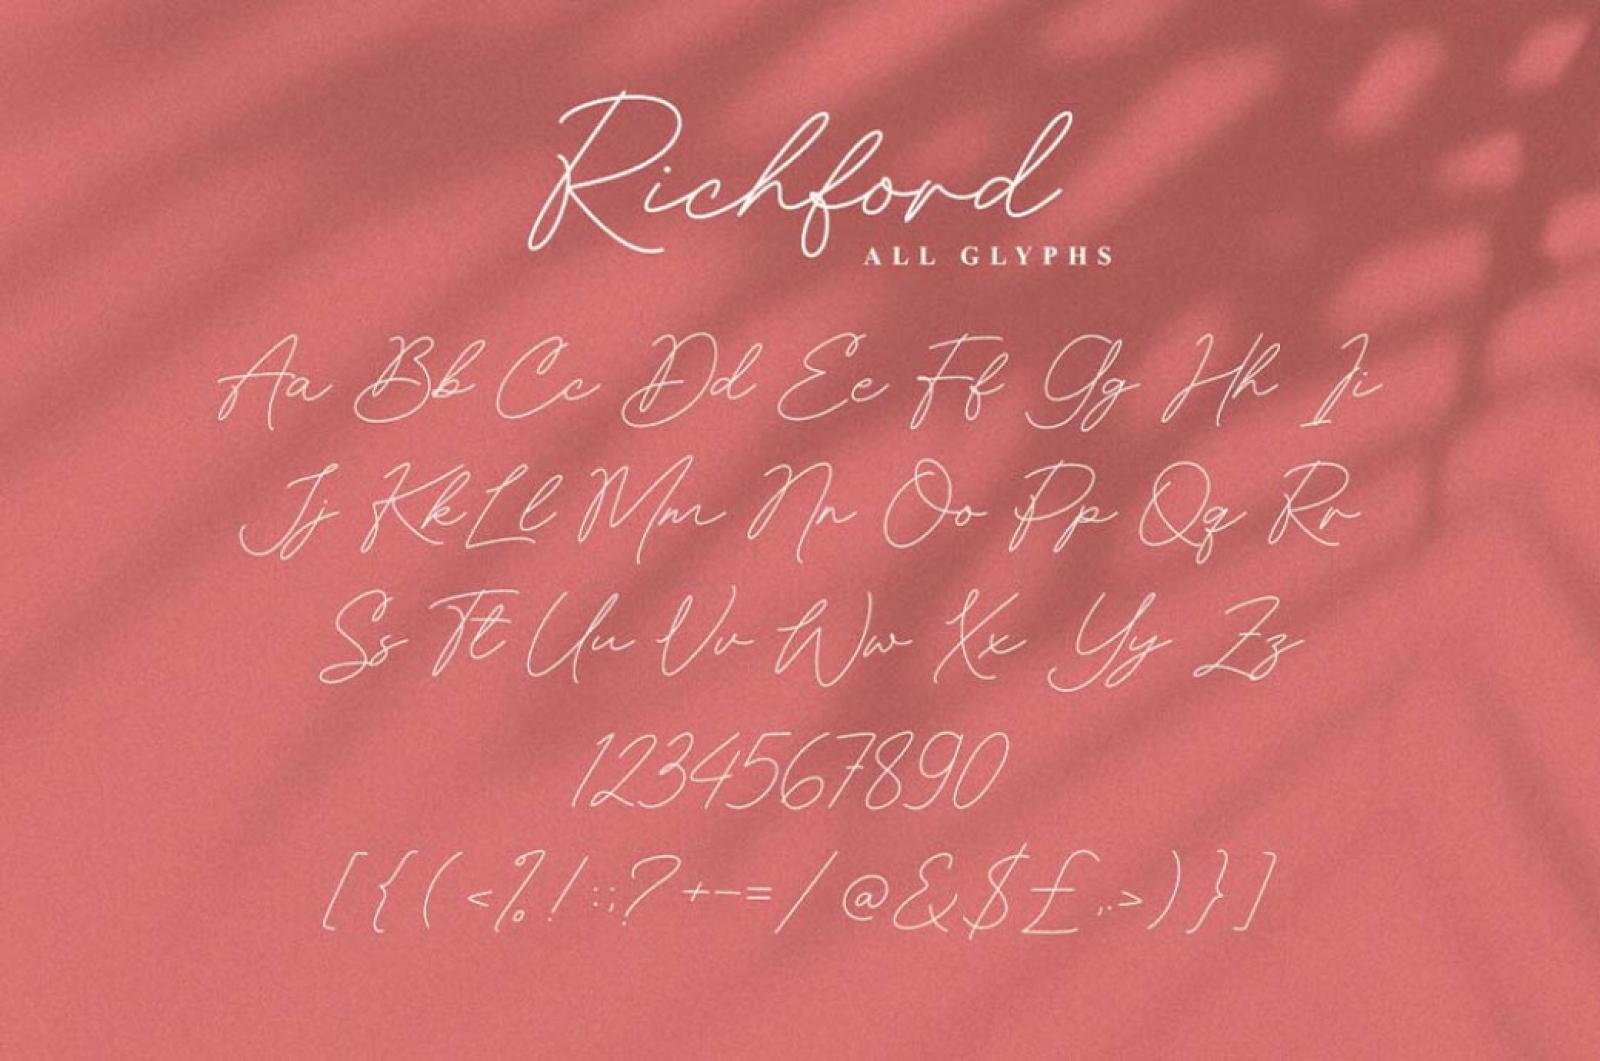 Richford
ALL GLYPHS
Aa Bb Cc Dd Ee Ff Gg Hh Ii
Jj Kk Ll Mm Nn Oo Pp Qq Rr
Ss Tt Uu Vv Ww Xx Yy Zz
1234567890
[{(<%!:;?+-=/@&$£,.>)}]